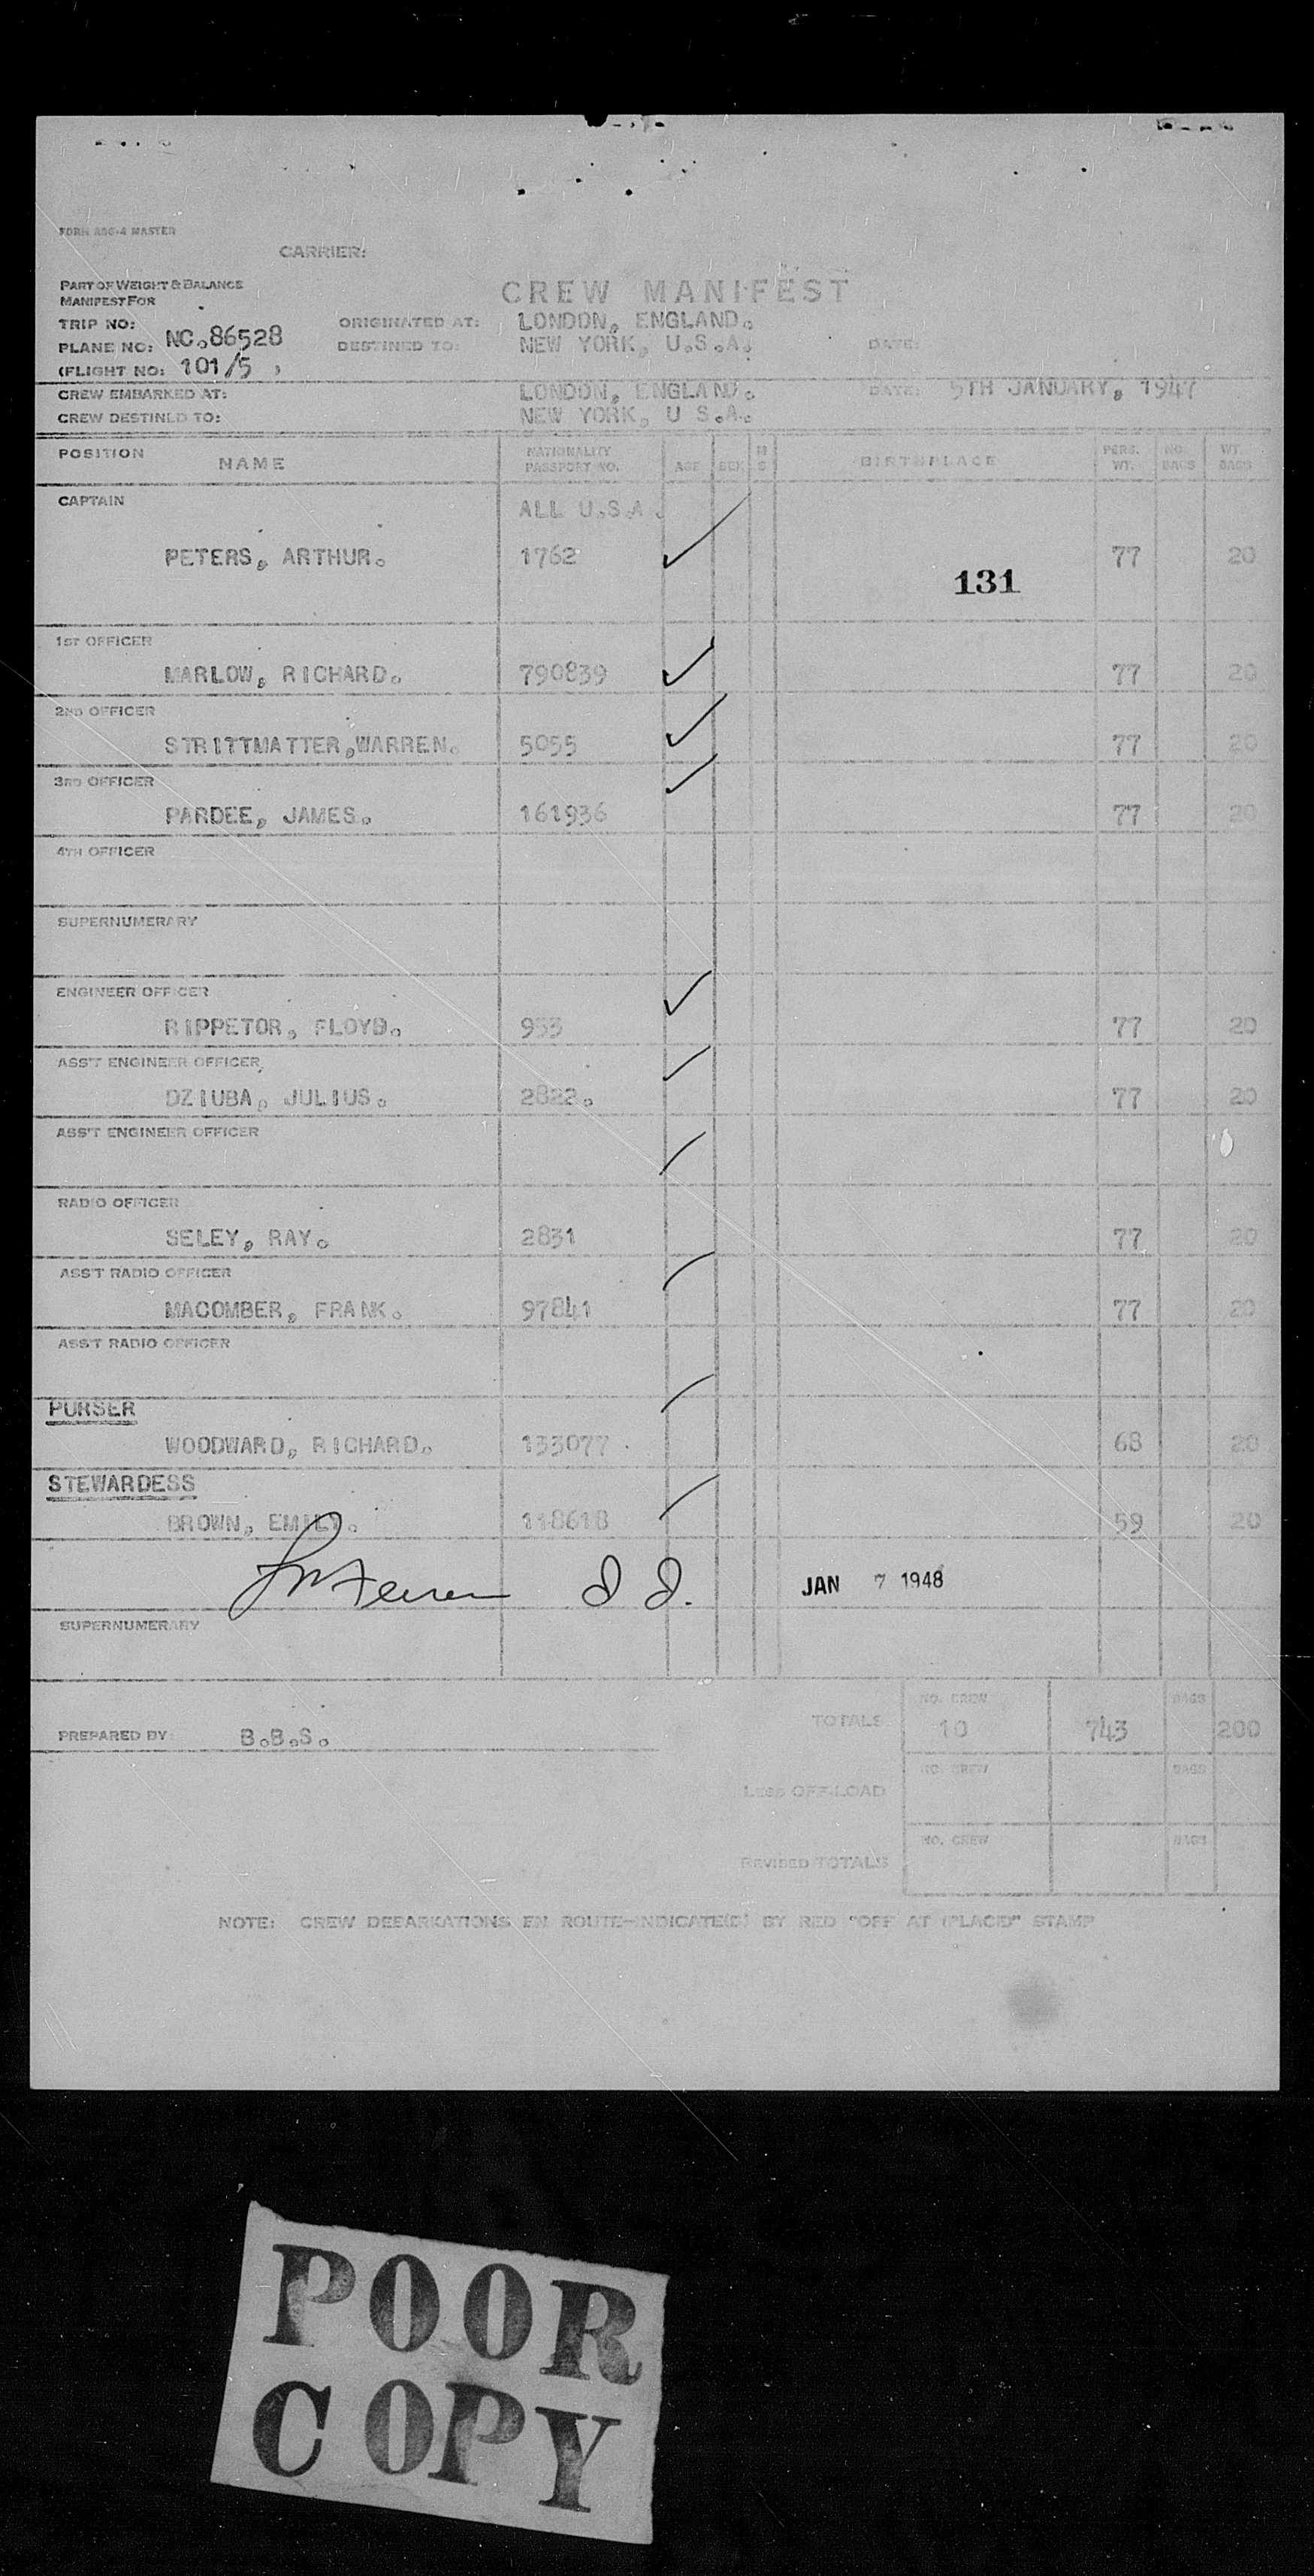 FORM 406-4 MASTER
CARRIER:
PART OF WEIGHT & BALANCE
MANIFEST FOR
CREW MANIFEST
TRIP NO:
ORIGINATED AT: LONDON, ENGLAND.
PLANE NO: NC.86528
DESTINED TO: NEW YORK, U.S.A. DATE:
(FLIGHT NO: 101/5 )
CREW EMBARKED AT: LONDON, ENGLAND. DATE: 5TH JANUARY, 1947
CREW DESTINED TO: NEW YORK, U S.A.
POSITION NAME NATIONALITY PASSPORT NO. AGE SEX M S BIRTHPLACE PERS. WT. NO. BAGS WT. BAGS
CAPTAIN ALL U.S.A.
PETERS, ARTHUR. 1762 77 20
131
1ST OFFICER
MARLOW, RICHARD. 790839 77 20
2ND OFFICER
STRITTMATTER,WARREN. 5055 77 20
3RD OFFICER
PARDEE, JAMES. 161936 77 20
4TH OFFICER
SUPERNUMERARY
ENGINEER OFFICER
RIPPETOR, FLOYD. 933 77 20
ASS'T ENGINEER OFFICER
DZIUBA, JULIUS. 2822. 77 20
ASS'T ENGINEER OFFICER
RADIO OFFICER
SELEY, RAY. 2831 77 20
ASS'T RADIO OFFICER
MACOMBER, FRANK. 97841 77 20
ASS'T RADIO OFFICER
PURSER
WOODWARD, RICHARD. 133077 68 20
STEWARDESS
BROWN, EMILY. 118618 59 20
JAN 7 1948
SUPERNUMERARY
NO. CREW BAGS
PREPARED BY B.B.S. TOTALS 10 743 200
NO. CREW BAGS
LESS OFF-LOAD
NO. CREW BAGS
REVISED TOTALS
NOTE: CREW DEBARKATIONS EN ROUTE-INDICATE(D) BY RED "OFF AT (PLACE)" STAMP
POOR
COPY